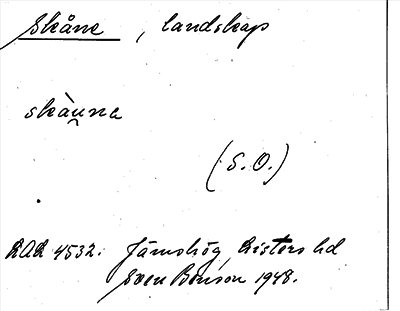 Skåne, landskap
skàu̯na
(S. O.)
LAL 4532. Jämshög, Listers hd
Sven Benson 1948.